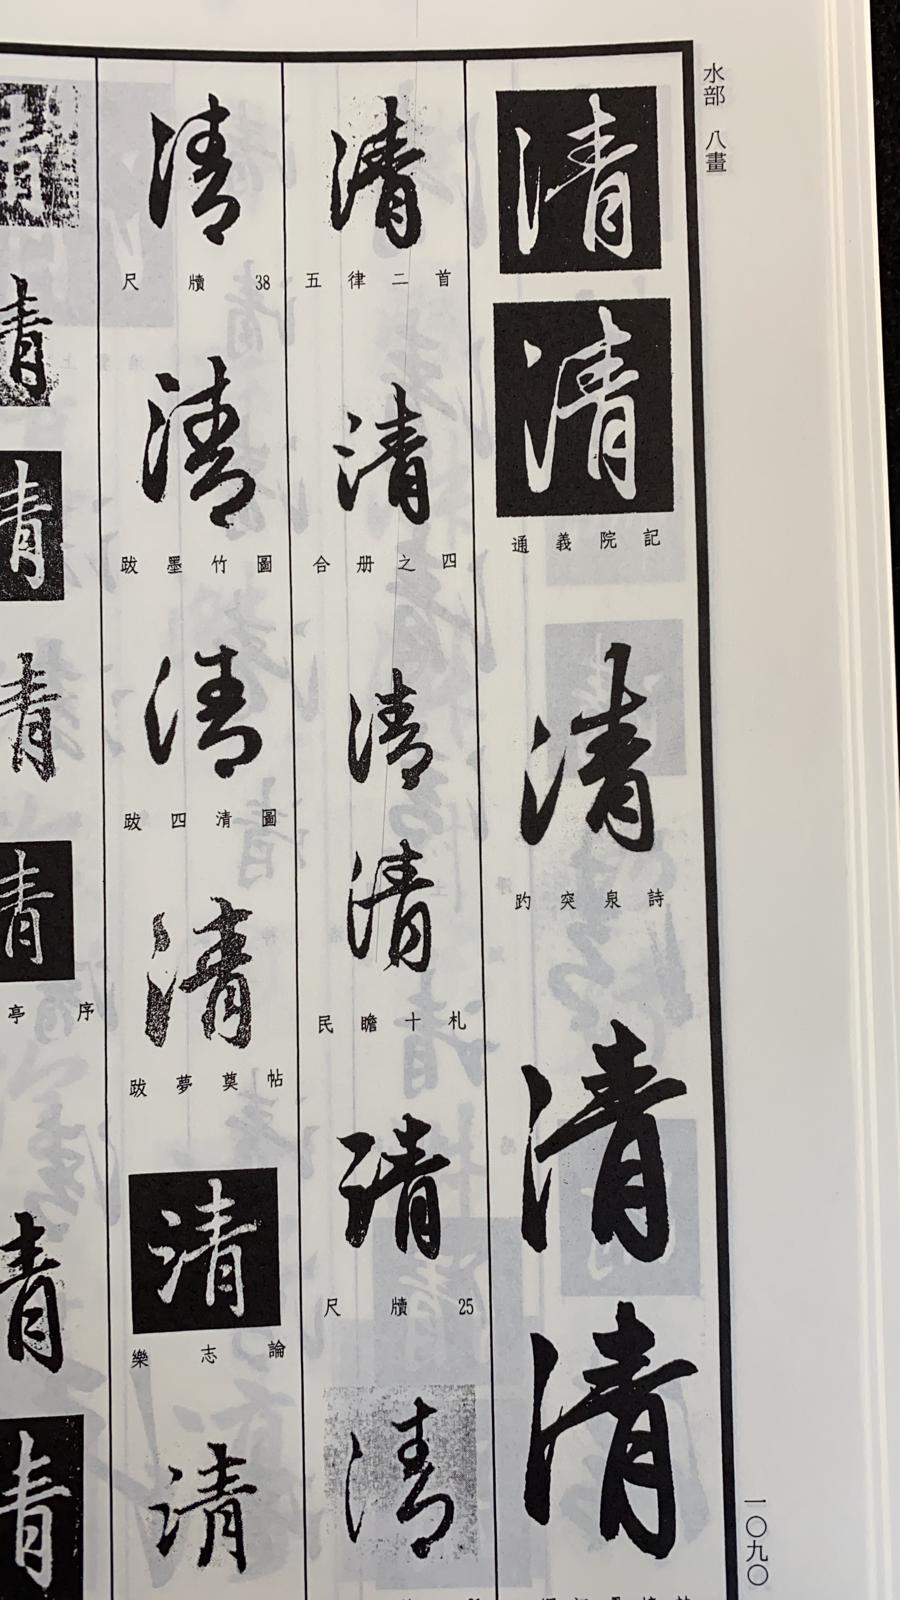 水部 八畫
清
清
通義院記
清
趵突泉詩
清
清
清
五律二首
清
合册之四
清
清
民瞻十札
清
尺牘25
清
清
尺牘38
清
跋墨竹圖
清
跋四清圖
清
跋夢奠帖
清
樂志論
清
亭序
一〇九〇